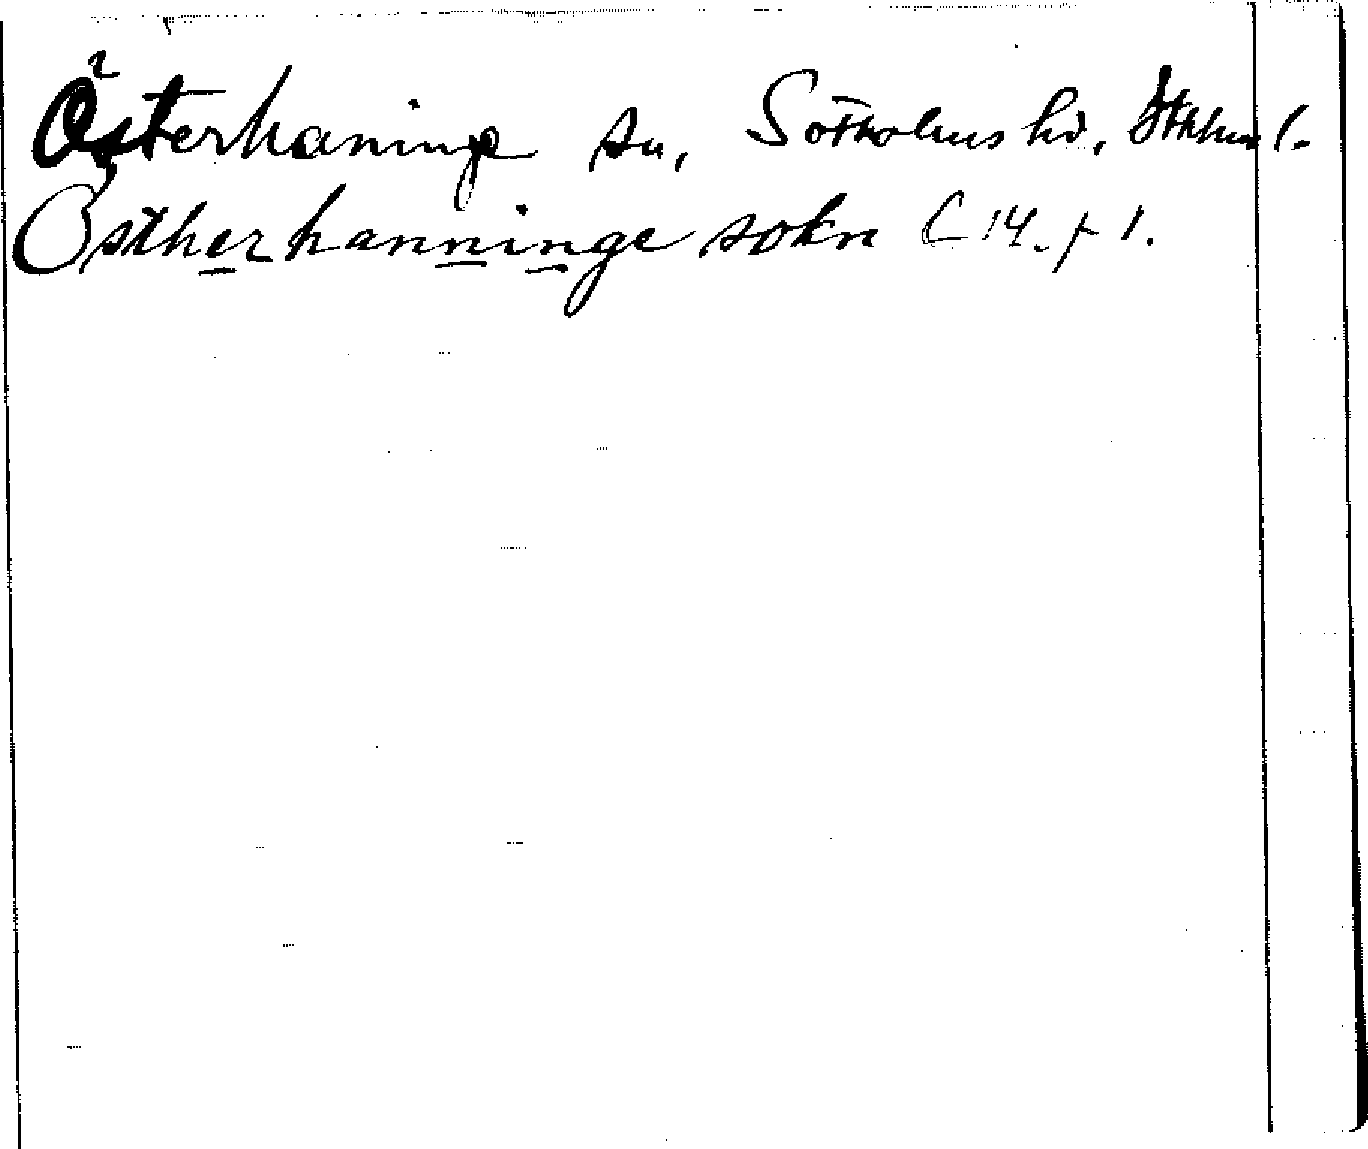 Österhaninge sn, Sotholms hd, Stkhm l.
Östherhanninge sokn C 14. f 1.